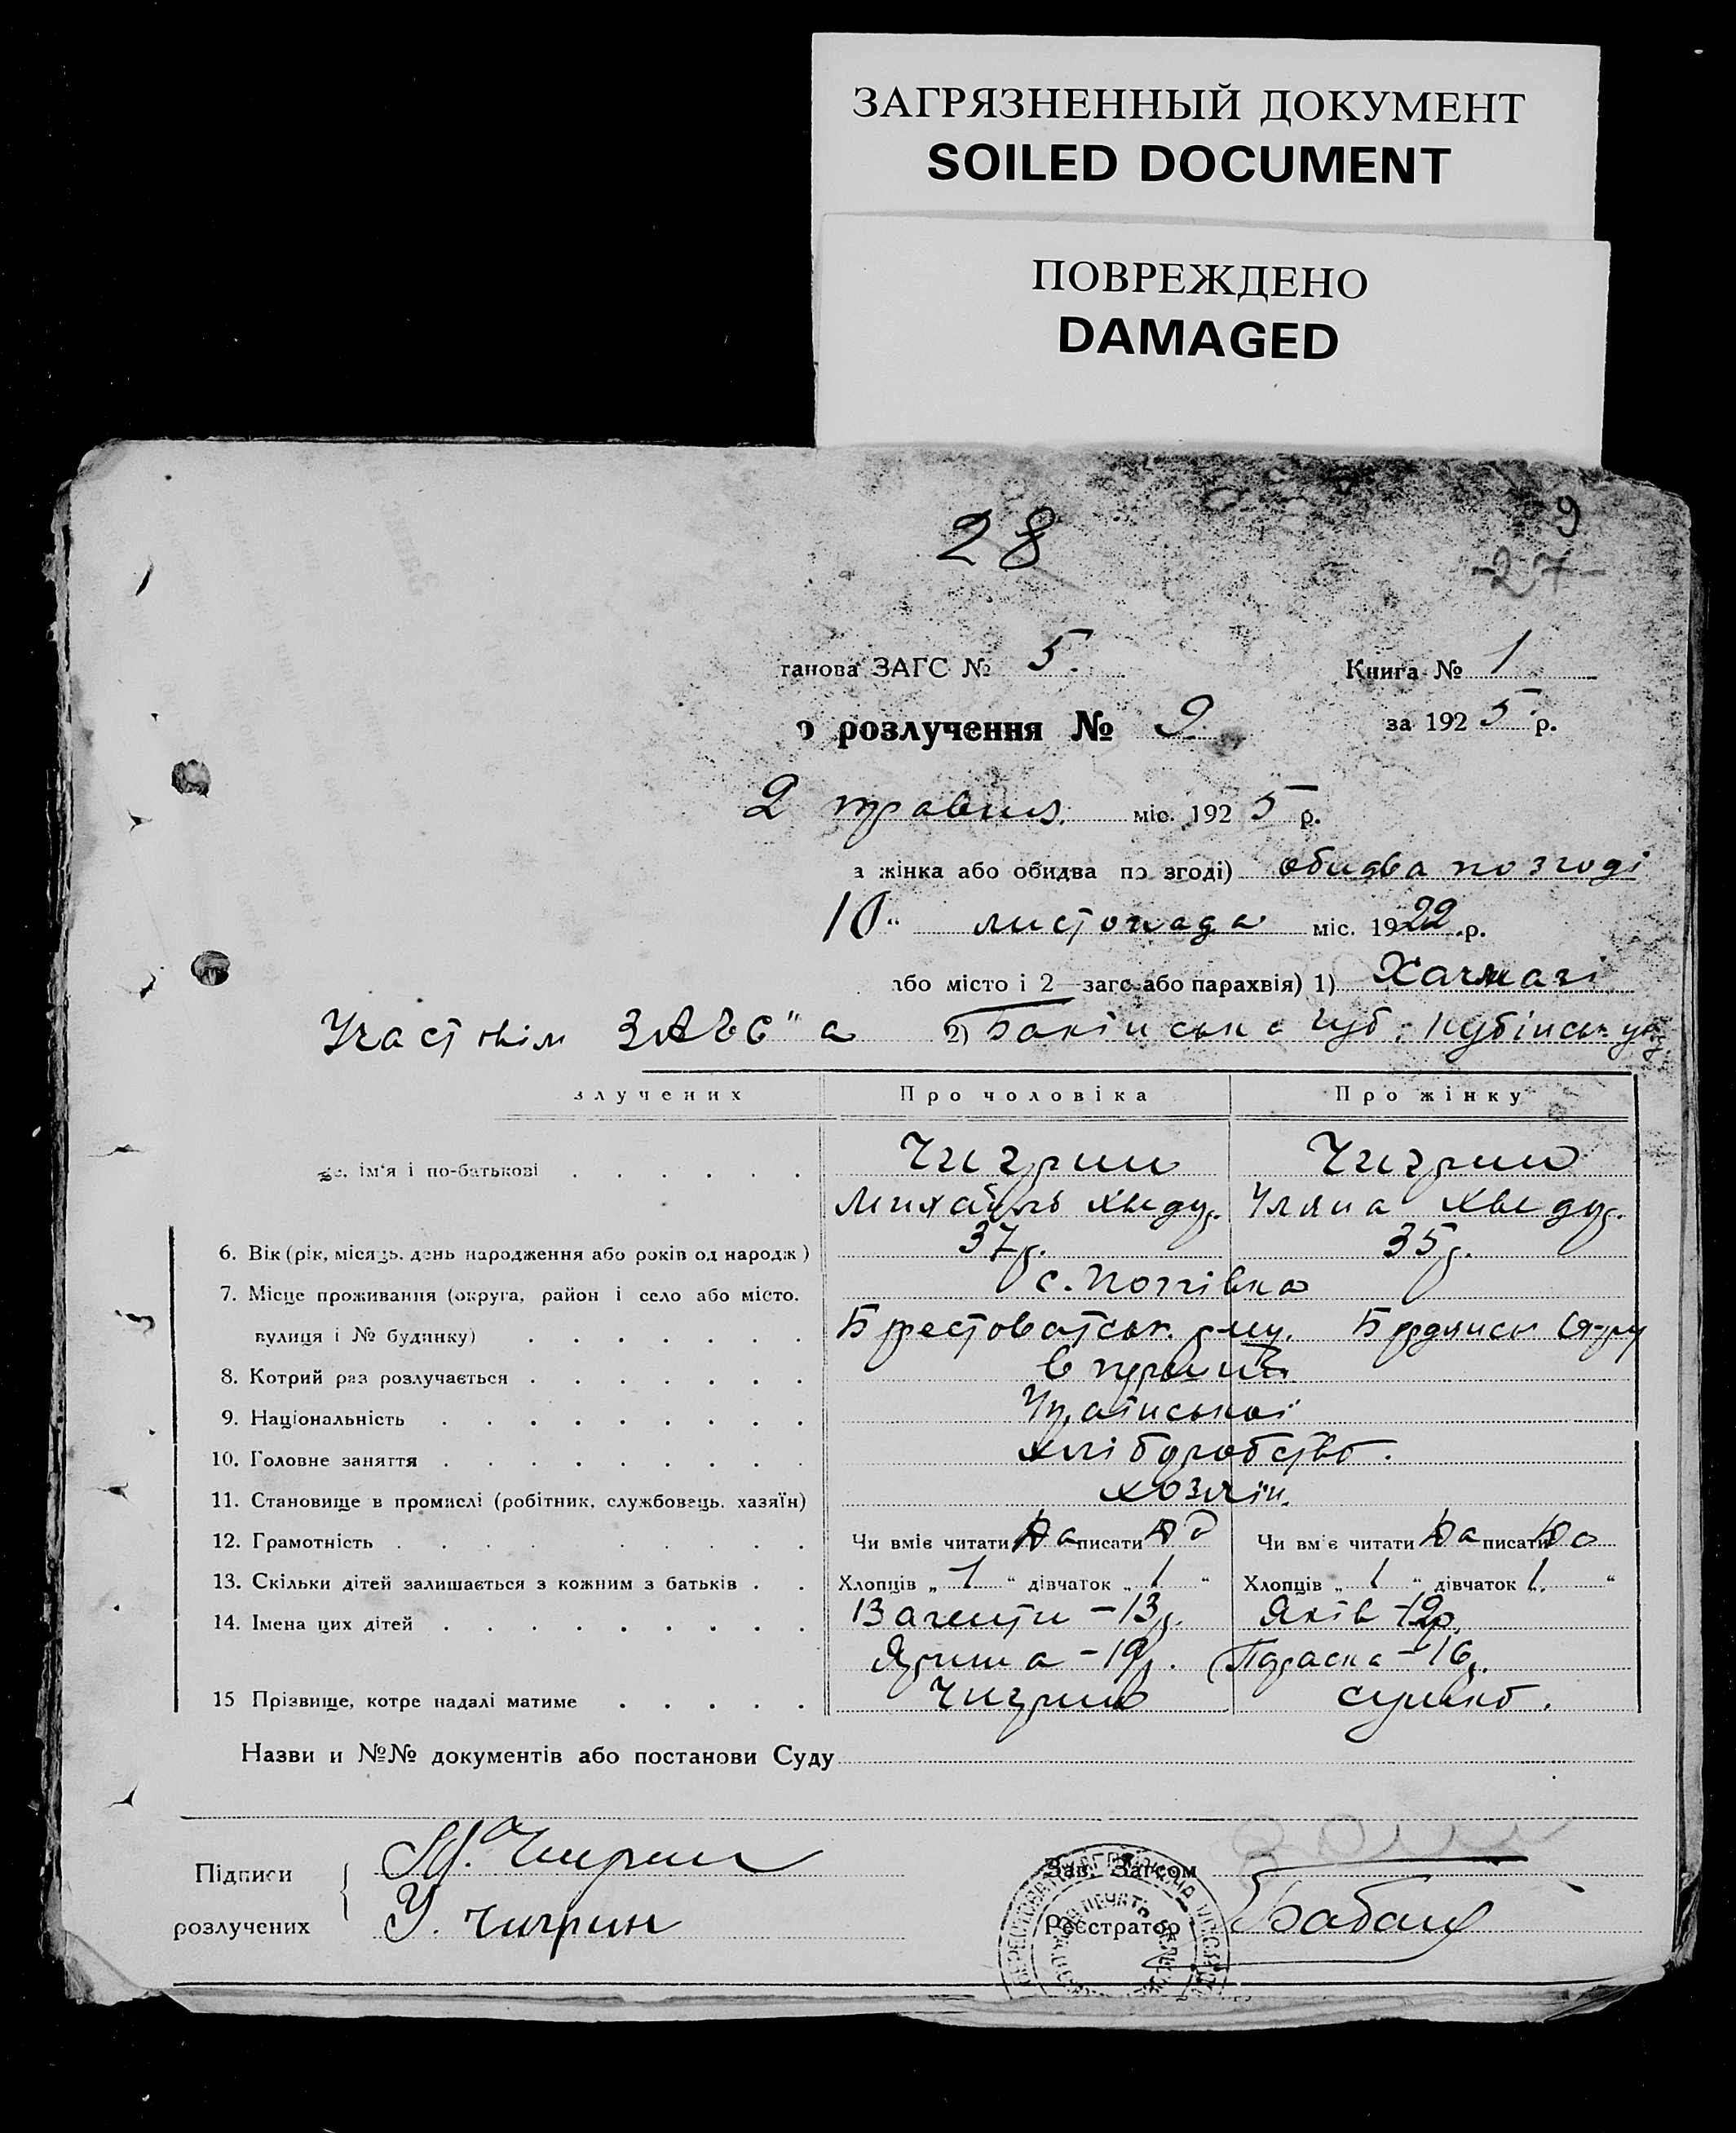 ЗАГРЯЗНЕННЫЙ ДОКУМЕНТ
SOILED DOCUMENT
ПОВРЕЖДЕНО
DAMAGED
28
9
-27-
танова ЗАГС № 5. Книга № 1
о розлучення № 9. за 1925 р.
2 травня. міс. 1925 р.
а жінка або обидва по згоді) обидва по згоді
10 “ листопада міс. 1922 р.
або місто і 2 загс або парахвія) 1) Хачмазі
Участкім ЗАГС"а 2) Бакінська губ. Кубінськ
злучених Про чоловіка Про жінку
ім‘я і по-батькові Чигрин Чигрин
Михайло Хведур. Уляна Хведор.
6. Вік (рік, місяць. день народження або років од народж) 37 р. 35 р.
7. Місце проживання (округа, район і село або місто. с. Попівка
вулиця і № будинку) Берестоватськ. рну. Бердянськ
8. Котрий раз розлучається в перший
9. Національність Української
10. Головне заняття хліборобство.
11. Становище в промислі (робітник, службовець. хазяїн) хозяїн.
12. Грамотність Чи вміє читати да писати да Чи вміє читати да писати да
13. Скільки дітей залишається з кожним з батьків Хлопців „ 1 “ дівчаток „ 1 “ Хлопців „ 1 “ дівчаток 1. “
14. Імена цих дітей – 13 р. Яків – 12 р.
Ярина – 19 р. Параска – 16 р.
15 Прізвище, котре надалі матиме Чигрин
Назви и №№ документів або постанови Суду
Підписи М. Чигрин Зав. Загсом
розлучених У. Чигрин Реєстратор Бабак